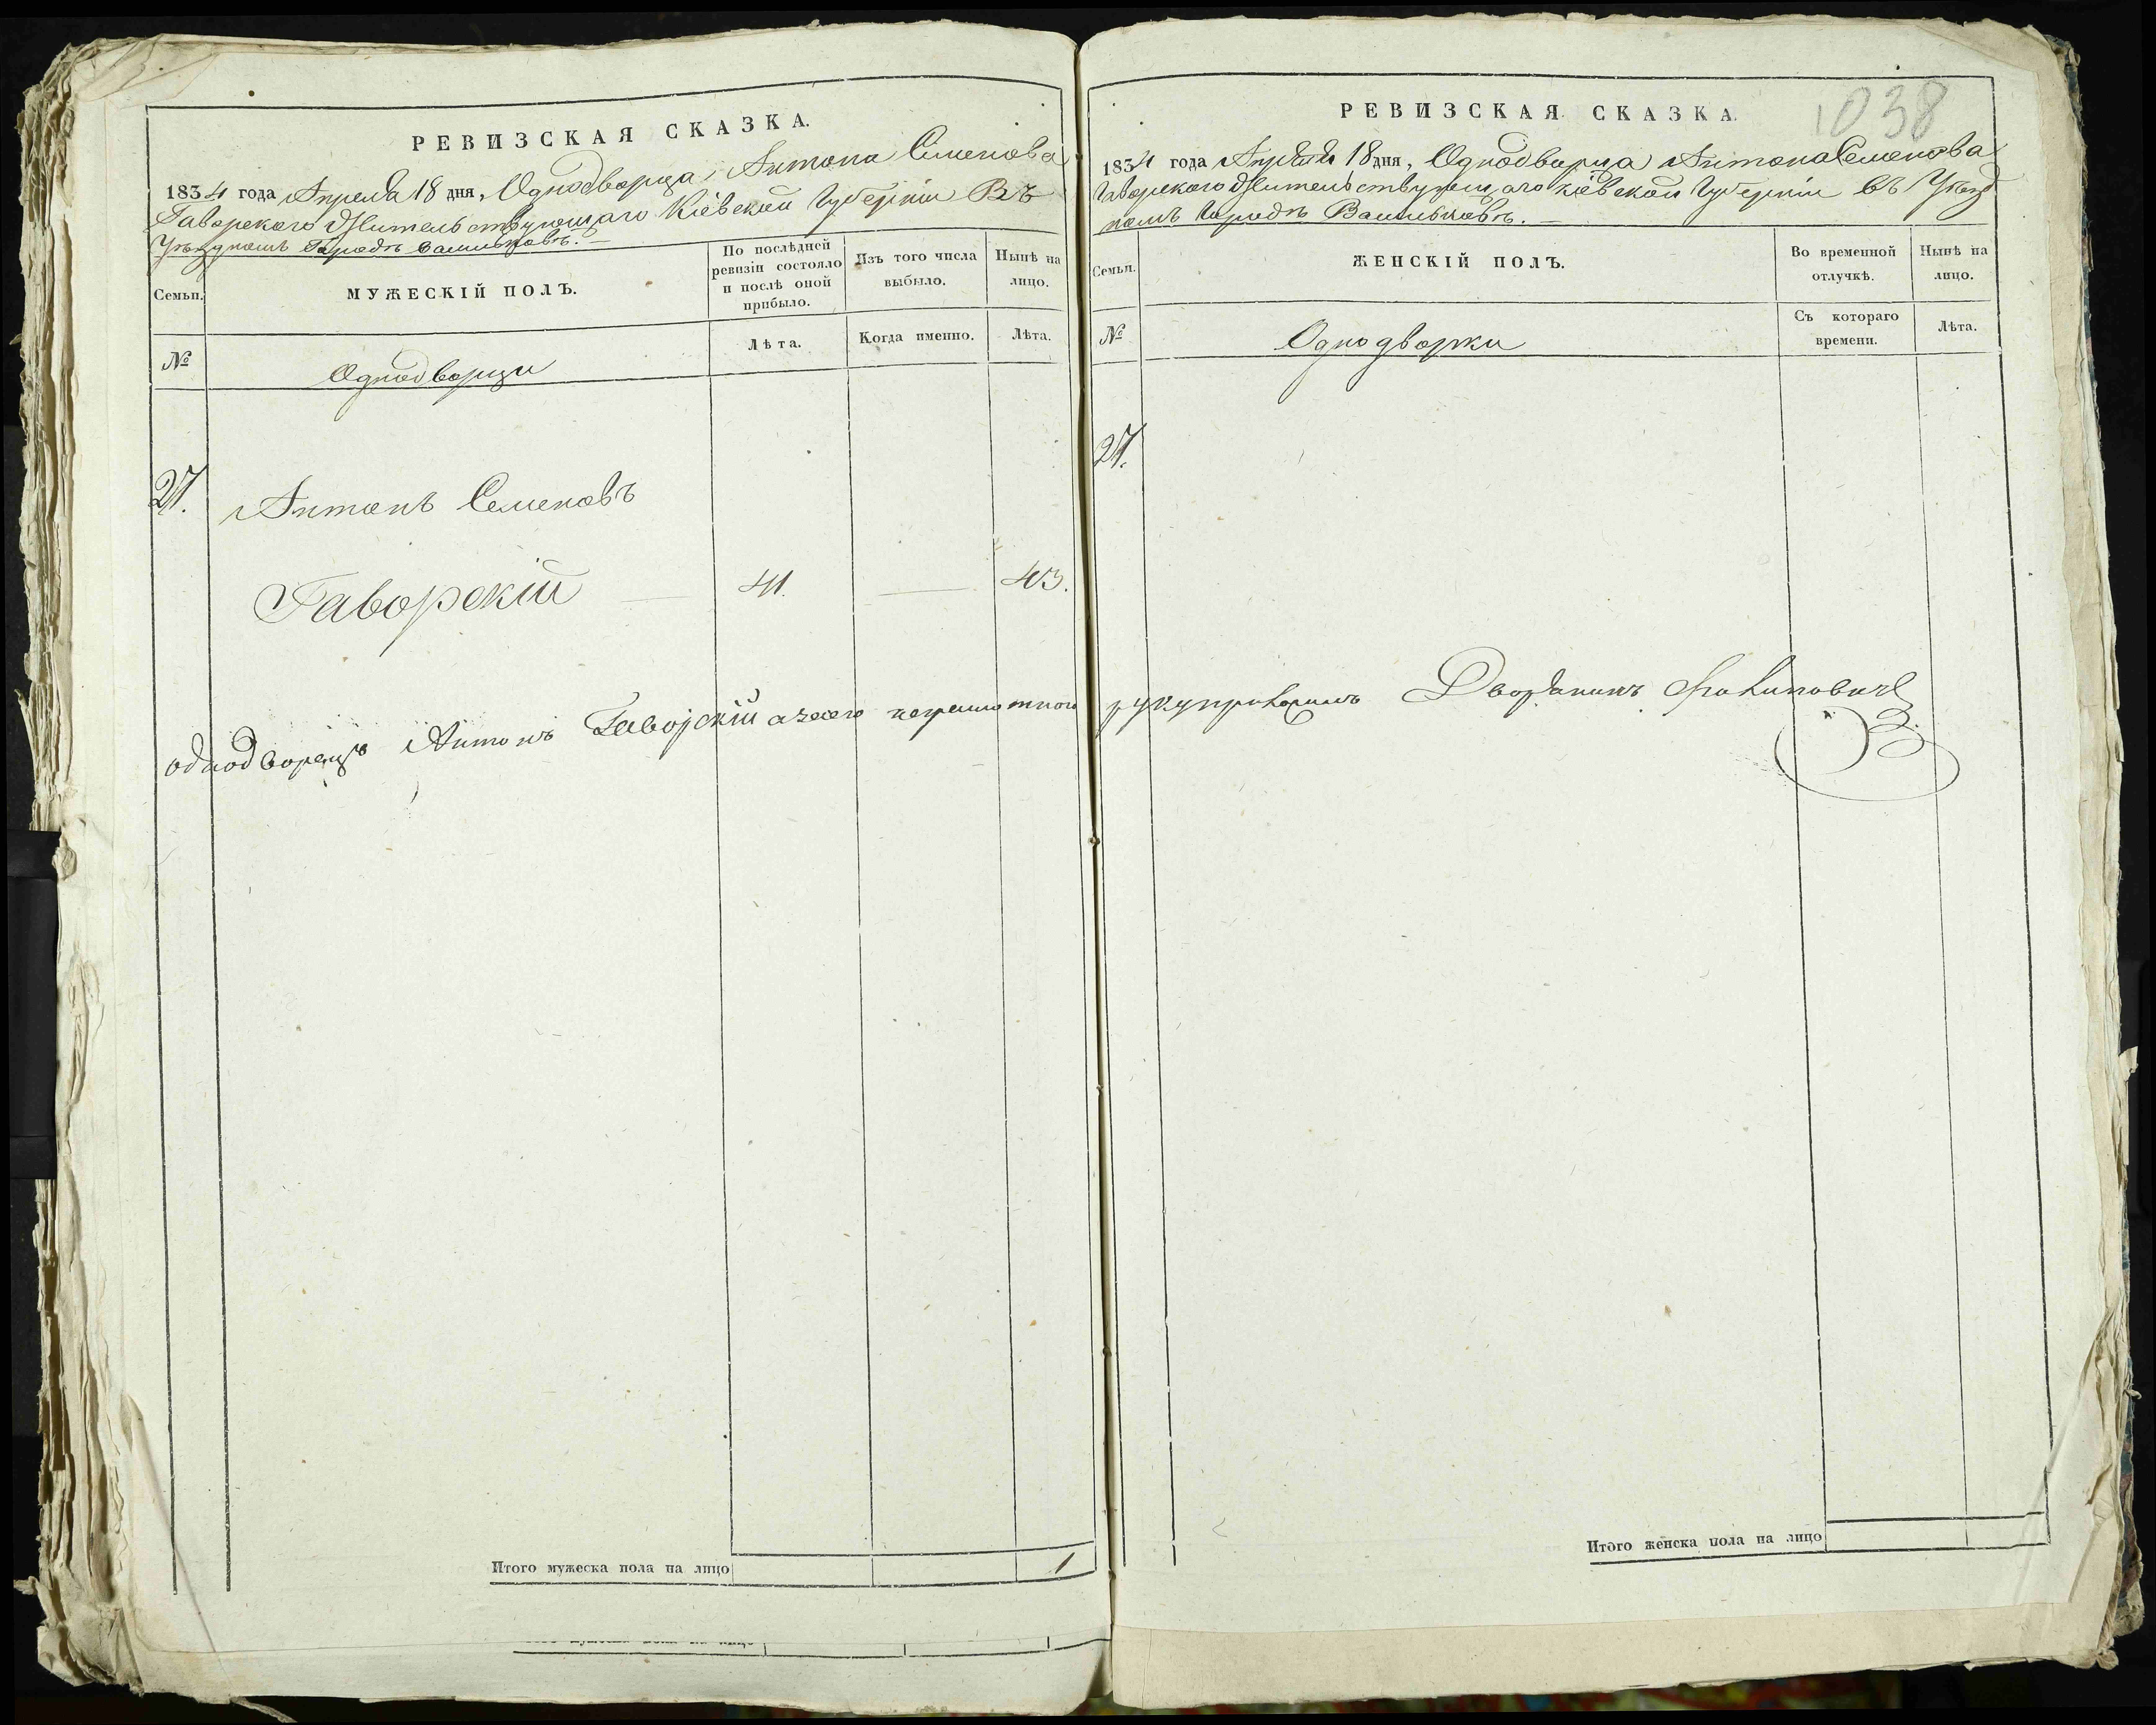 РЕВИЗСКАЯ СКАЗКА.
1834 года Апреля 18 дня, Однодворца, Антона Семенова
Гаворского Жительствующаго Кіевской Губерніи Въ
Уѣздномъ Городѣ Васильковѣ. —
Семьи.
МУЖЕСКІЙ ПОЛЪ.
По послѣдней
ревизіи состояло
и послѣ оной
прибыло.
Изъ того числа
выбыло.
Нынѣ на
лицо.
№
Однодворци
Лѣта.
Когда именно.
Лѣта.
27.
Антонъ Семеновъ
Гаворскій — 41. — 43.
однодворецъ Антонъ Гаворскій а за его неграмотного
Итого мужеска пола на лицо 1
1038
РЕВИЗСКАЯ СКАЗКА.
1834 года Апреля 18 дня, Однодворца Антона Семенова
Гаворского Жительствующаго Кіевской Губерніи въ Уезд
номъ Городѣ Васильковѣ. —
Семьи.
ЖЕНСКІЙ ПОЛЪ.
Во временной
отлучкѣ.
Нынѣ на
лицо.
№
Однодворки
Съ котораго
времени.
Лѣта.
27.
руку приложилъ Дворянинъ
Итого женска пола на лицо